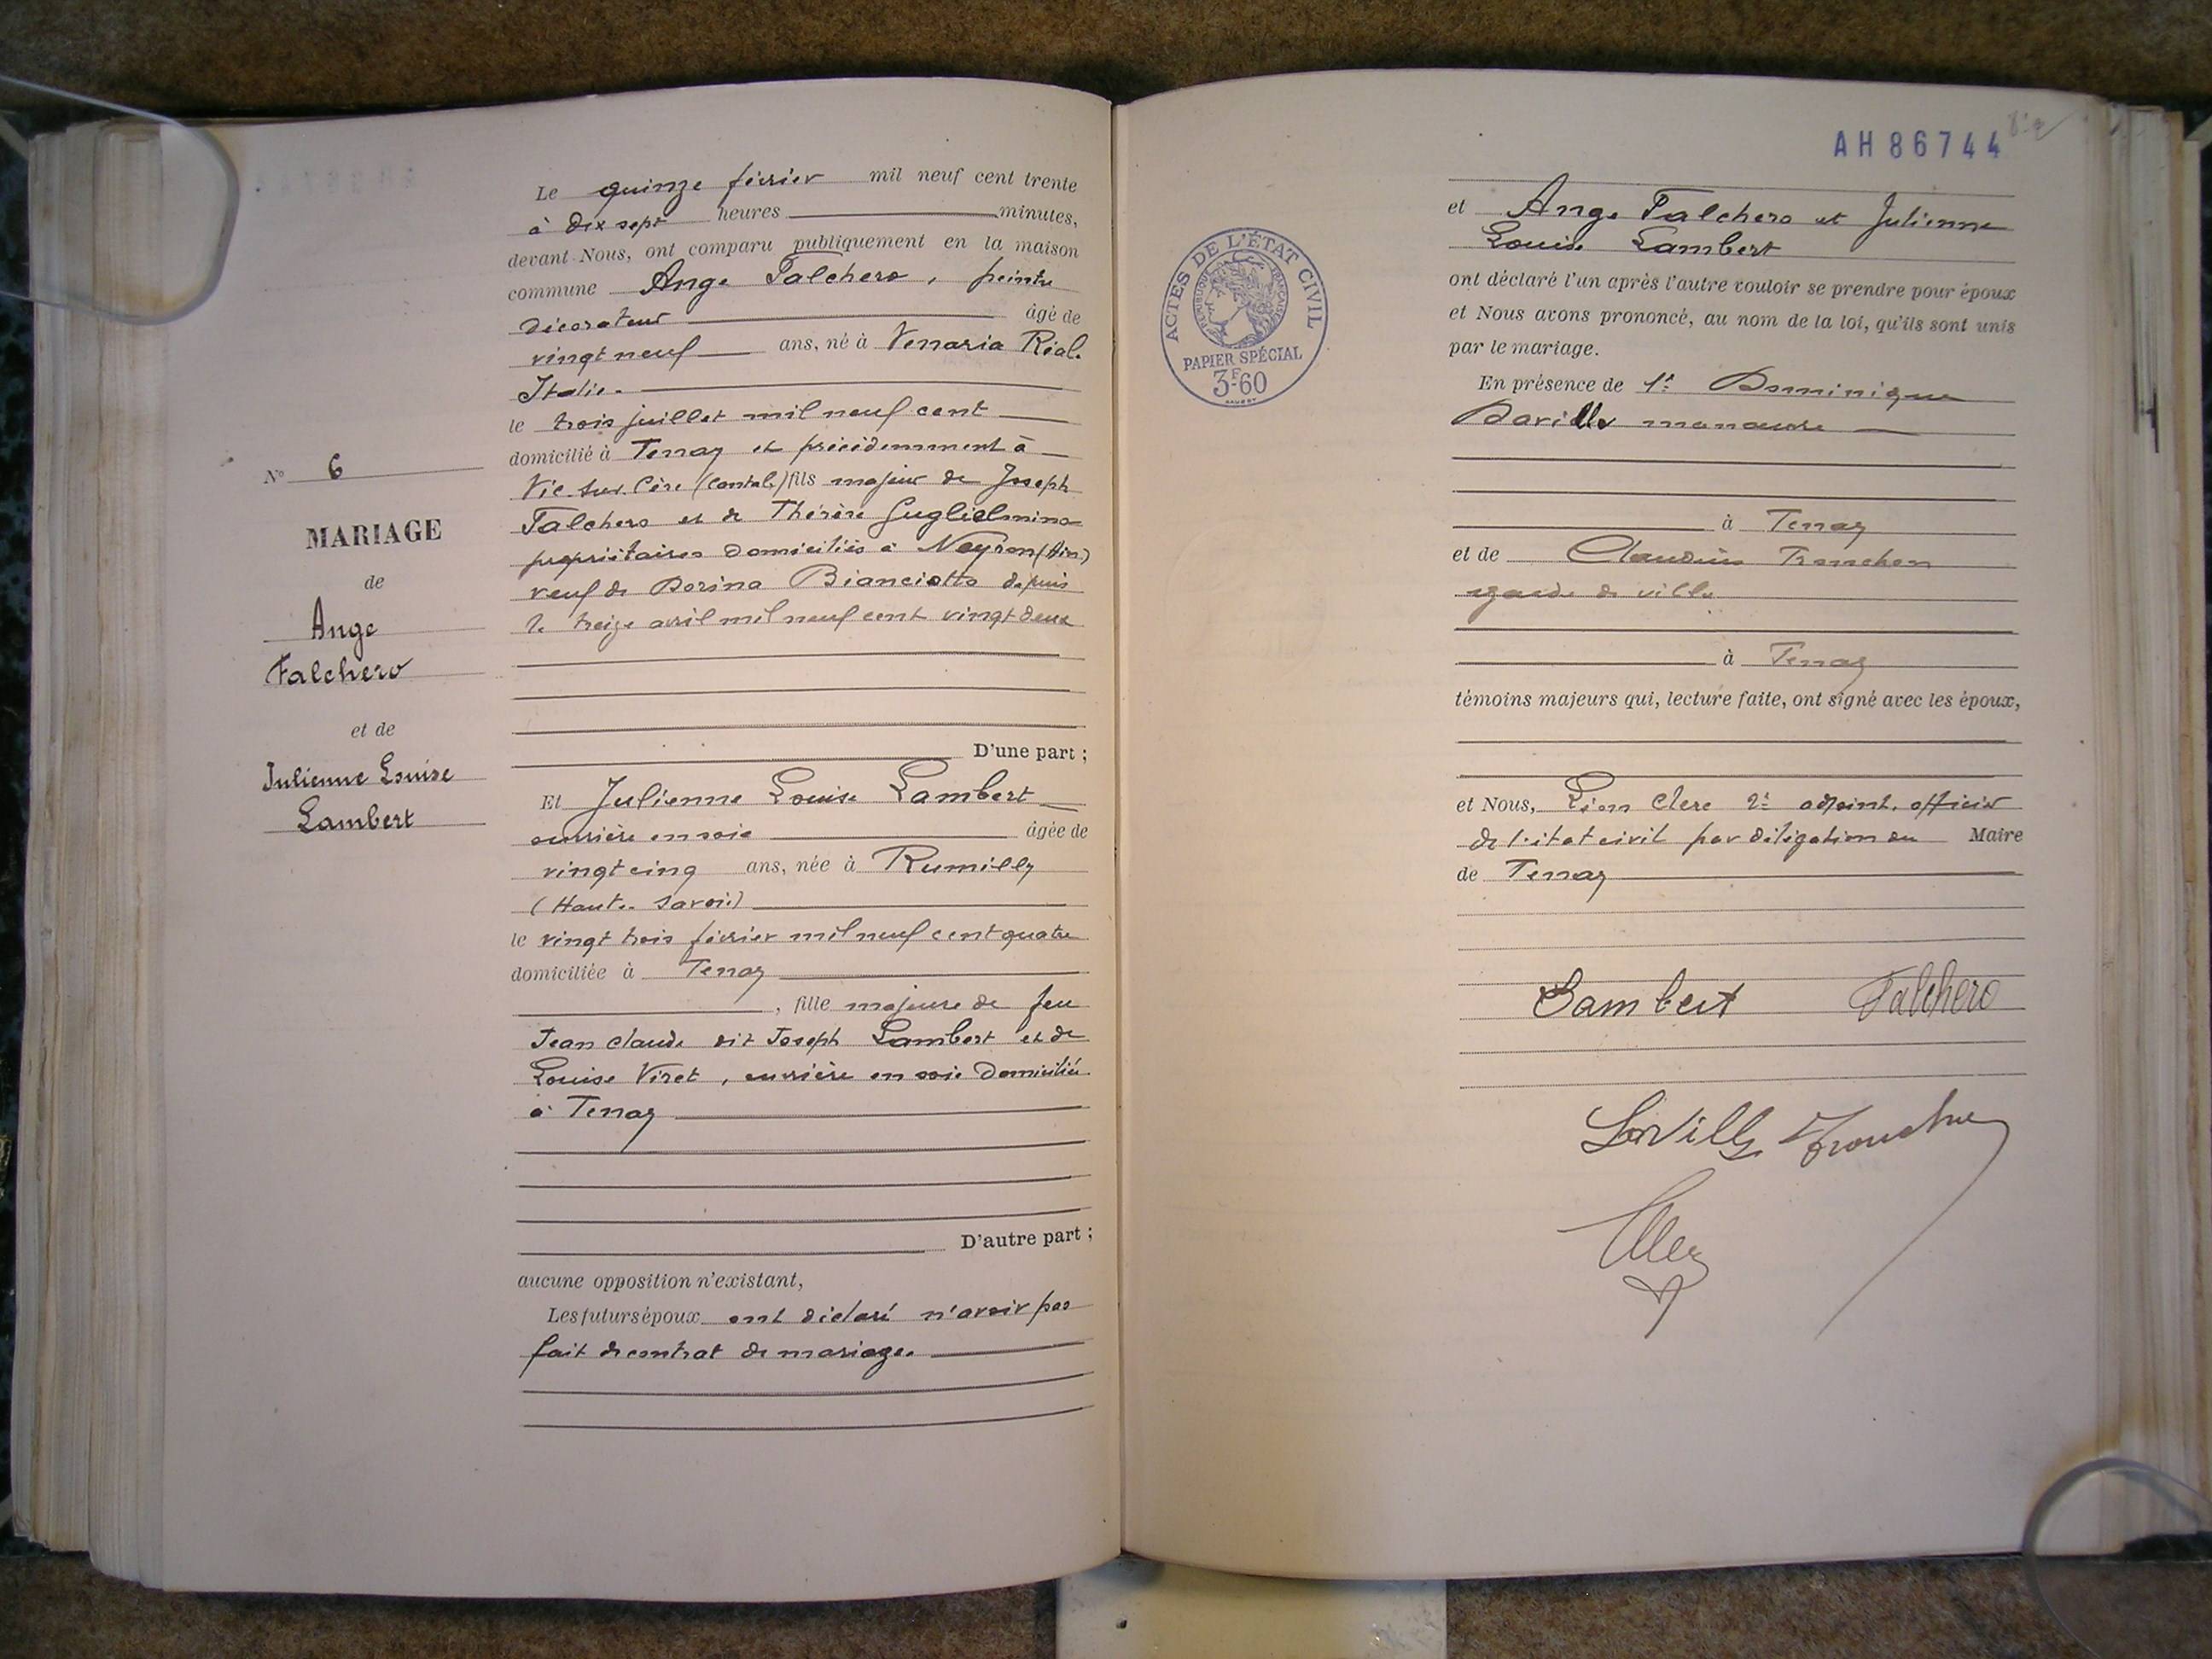 Le quinze février mil neuf cent trente
à dix sept heures minutes,
devant Nous, ont comparu publiquement en la maison
commune Ange Falchero, peintre
décorateur âgé de
vingt neuf ans, né à Venaria Réal.
Italie.
le trois juillet mil neuf cent
domicilié à Tenay et précédemment à
Vic sur Cère (Cantal) fils majeur de Joseph
Falchero et de Thérèse Guglielmino
propriétaires domiciliés à Neyron (Ain)
veuf de Dorina Bianciotto depuis
le treize avril mil neuf cent vingt deux
D'une part ;
N° 6
MARIAGE
de
Ange
Falchero
et de
Julienne Louise
Lambert
Et Julienne Louise Lambert
ouvrière en soie âgée de
vingt cinq ans, née à Rumilly
(Haute-Savoie)
le vingt trois février mil neuf cent quatre
domiciliée à Tenay
, fille majeure de feu
Jean Claude dit Joseph Lambert et de
Louise Viret, ouvrière en soie domiciliée
à Tenay
D'autre part ;
aucune opposition n'existant,
Les futurs époux ont déclaré n'avoir pas
fait de contrat de mariage.
AH 86744
ACTES DE L'ÉTAT CIVIL
RÉPUBLIQUE FRANÇAISE
PAPIER SPÉCIAL
3F60
et Ange Falchero et Julienne
Louise Lambert
ont déclaré l'un après l'autre vouloir se prendre pour époux
et Nous avons prononcé, au nom de la loi, qu'ils sont unis
par le mariage.
En présence de 1° Dominique
Daville manœuvre
à Tenay
et de Claudius Tronchon
garde de ville
à Tenay
témoins majeurs qui, lecture faite, ont signé avec les époux,
et Nous, Léon Clerc 2e adjoint, officier
de l'état civil par délégation du Maire
de Tenay
Lambert Falchero